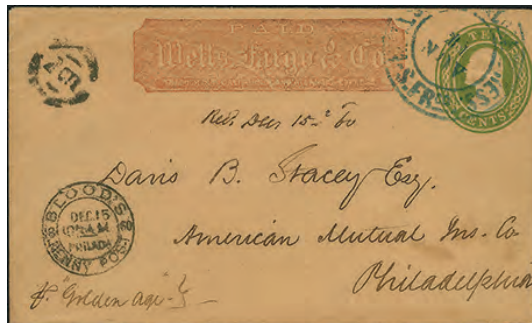 PAID
Wells, Fargo & Co.
TEN CENTS
NOV
S. FR
Recd Dec 15th 60
Davis B. Stacey Esq.
American Mutual Ins. Co
Philadelphia
BLOOD'S PENNY POST
DEC 15
PHILADA
pr "Golden Age"